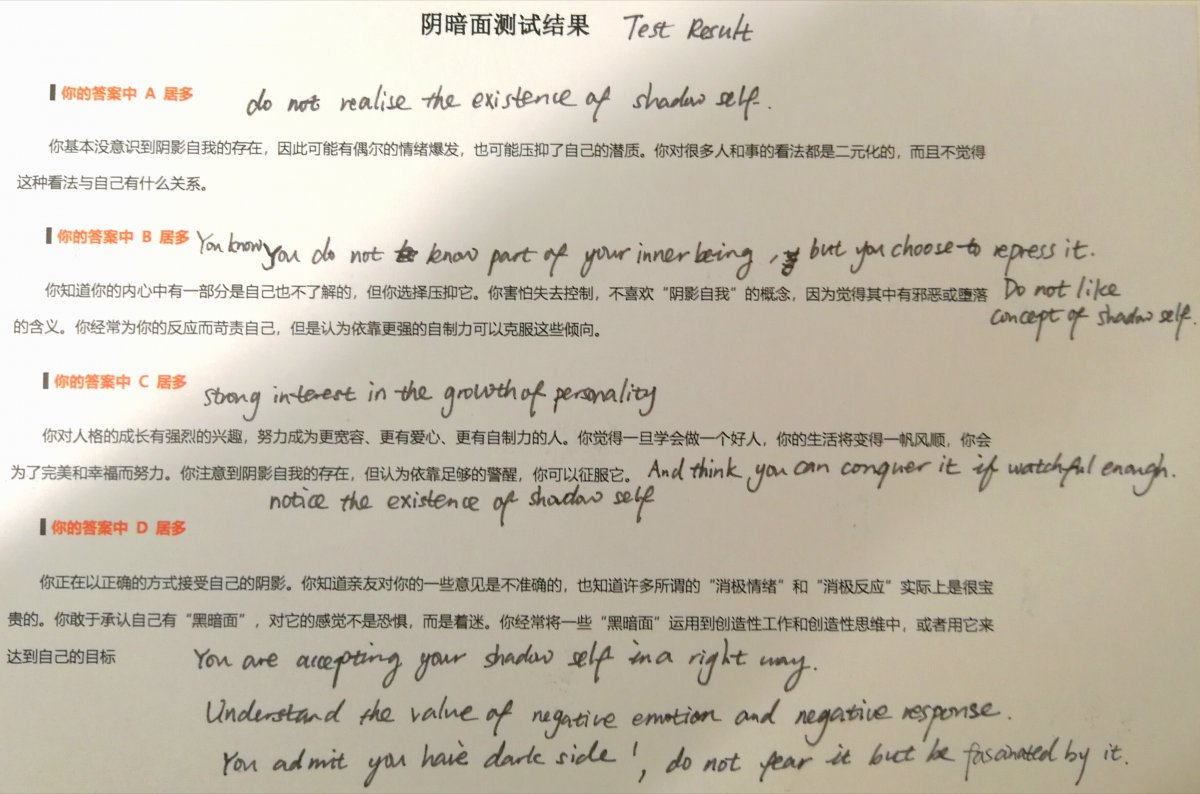 阴暗面测试结果 Test Result
你的答案中 A 居多 do not realise the existence of shadow self.
你基本没意识到阴影自我的存在，因此可能有偶尔的情绪爆发，也可能压抑了自己的潜质。你对很多人和事的看法都是二元化的，而且不觉得
这种看法与自己有什么关系。
你的答案中 B 居多 You know you do not know part of your inner being, but you choose to repress it.
你知道你的内心中有一部分是自己也不了解的，但你选择压抑它。你害怕失去控制，不喜欢“阴影自我”的概念，因为觉得其中有邪恶或堕落 Do not like
的含义。你经常为你的反应而苛责自己，但是认为依靠更强的自制力可以克服这些倾向。 concept of shadow self.
你的答案中 C 居多 strong interest in the growth of personality
你对人格的成长有强烈的兴趣，努力成为更宽容、更有爱心、更有自制力的人。你觉得一旦学会做一个好人，你的生活将变得一帆风顺，你会
为了完美和幸福而努力。你注意到阴影自我的存在，但认为依靠足够的警醒，你可以征服它。 And think you can conquer it if watchful enough.
notice the existence of shadow self
你的答案中 D 居多
你正在以正确的方式接受自己的阴影。你知道亲友对你的一些意见是不准确的，也知道许多所谓的“消极情绪”和“消极反应”实际上是很宝
贵的。你敢于承认自己有“黑暗面”，对它的感觉不是恐惧，而是着迷。你经常将一些“黑暗面”运用到创造性工作和创造性思维中，或者用它来
达到自己的目标 You are accepting your shadow self in a right way.
Understand the value of negative emotion and negative response.
You admit you have dark side', do not fear it but be fascinated by it.